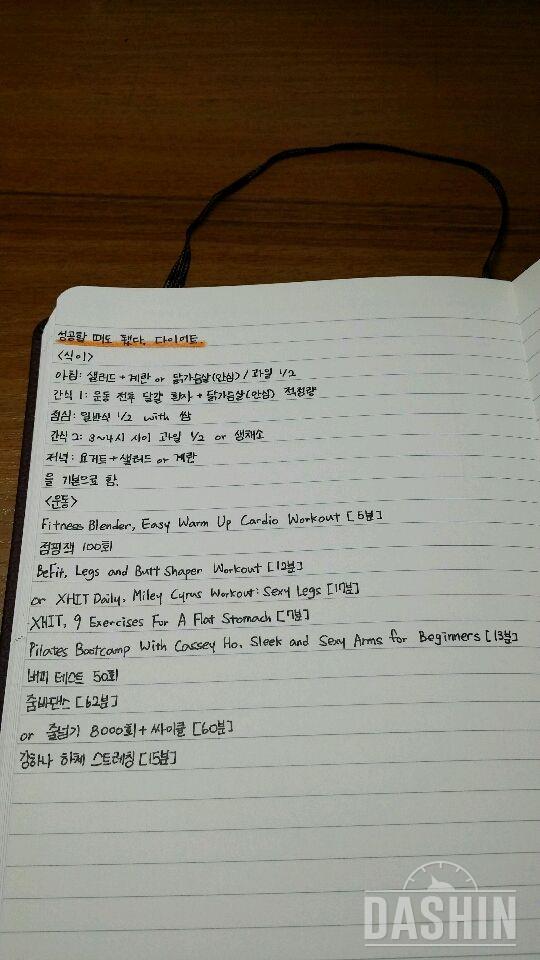 성공할 때도 됐다. 다이어트
<식이>
아침: 샐러드 + 계란 or 닭가슴살(안심) / 과일 1/2
간식 1: 운동 전후 달걀 흰자 + 닭가슴살(안심) 적정량
점심: 일반식 1/2 with 쌈
간식 2: 3~4시 사이 과일 1/2 or 생채소
저녁: 요거트 + 샐러드 or 계란
을 기본으로 함.
<운동>
Fitness Blender, Easy Warm Up Cardio Workout [5분]
점핑잭 100회
BeFit, Legs and Butt Shaper Workout [12분]
or XHIT Daily, Miley Cyrus Workout: Sexy Legs [17분]
XHIT, 9 Exercises For A Flat Stomach [7분]
Pilates Bootcamp With Cassey Ho. Sleek and Sexy Arms for Beginners [13분]
버피 테스트 50회
줌바댄스 [62분]
or 줄넘기 8000회 + 싸이클 [60분]
강하나 하체 스트레칭 [15분]
DASHIN